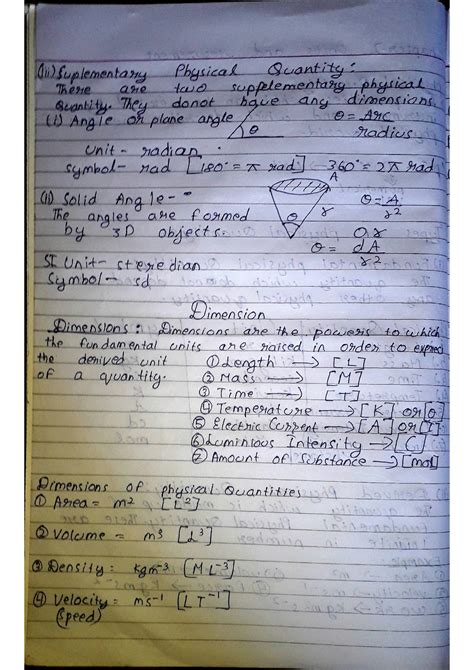 (iii) Suplementary Physical Quantity:
There are two supplementary physical
Quantity. They donot have any dimensions.
(i) Angle or plane angle θ θ = Arc
radius
Unit - radian
symbol - rad [180° = π rad] → 360° = 2π rad
(ii) Solid Angle - A θ = A
The angles are formed r r²
by 3D objects. θ Or
θ = dA
r²
SI Unit - steredian
Symbol - sd
Dimension
Dimensions: Dimensions are the powers to which
the fundamental units are raised in order to express
the derived unit ① Length → [L]
of a quantity. ② Mass → [M]
③ Time → [T]
④ Temperature → [K] or θ
⑤ Electric Current → [A] or [I]
⑥ Luminious Intensity → [C]
⑦ Amount of Substance → [mol]
Dimensions of physical Quantities
① Area = m² [L²]
② Volume = m³ [L³]
③ Density: Kgm⁻³ [ML⁻³]
④ Velocity = ms⁻¹ [LT⁻¹]
(speed)